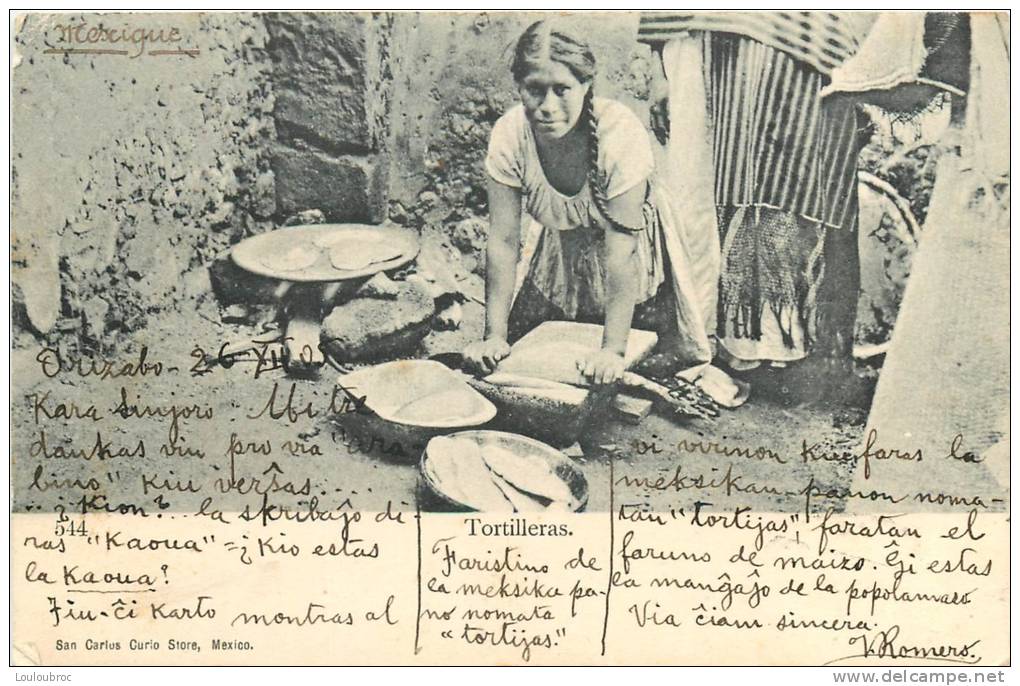 Mexique
Orizabo - 26 - XII 0
Kara Sinjoro. Mi tre
dankas vin pro via "ara-
bino" kiu verŝas....
.. ¿Kion?... la skribaĵo di-
ras "Kaoua" = ¿Kio estas
la Kaoua?
Tiu-ĉi karto montras al
544.
Tortilleras.
Faristino de
la meksika pa-
no nomata
"tortijas."
vi virinon kiu faras la
meksikan-panon noma-
tan "tortijas", faratan el
faruno de maizo. Ĝi estas
la manĝaĵo de la popolamaso
Via ĉiam sincera.
V. Romero.
San Carlos Curio Store, Mexico.
Louloubroc
www.delcampe.net